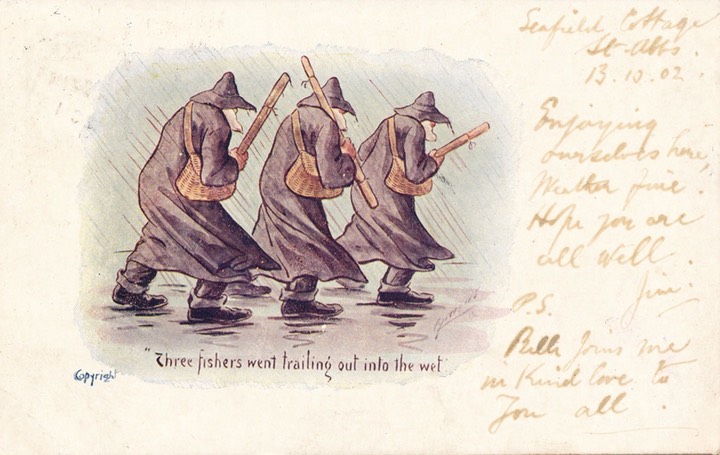 "Three fishers went trailing out into the wet
Copyright
Seafield Cottage
St. Abbs.
13.10.02.
Enjoying
ourselves here,
Weather fine.
Hope you are
all well.
Jim.
P.S.
Bella joins me
in kind love to
you all.